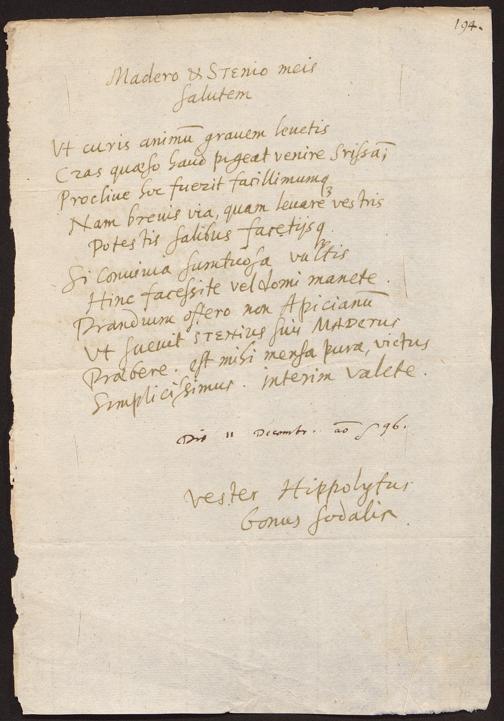 194.
Madero & STENIO meis
salutem
Vt curis animũ gravem levetis
Cras quæso haud pigeat venire
Proclive hoc fuerit facillimumq₃
Nam brevis via, quam levare vestris
Potestis salibus facetijsq.
Si convivia sumtuosa vultis
Hinc facessite vel domi manete.
Prandium offero non Apicianũ
Vt suevit STENIUS suis MADERUS
Præbere. est mihi mensa pura, victus
Simplicissimus. interim valete.
11 Decembr. aõ 96.
Vester Hippolytus
bonus sodalis.